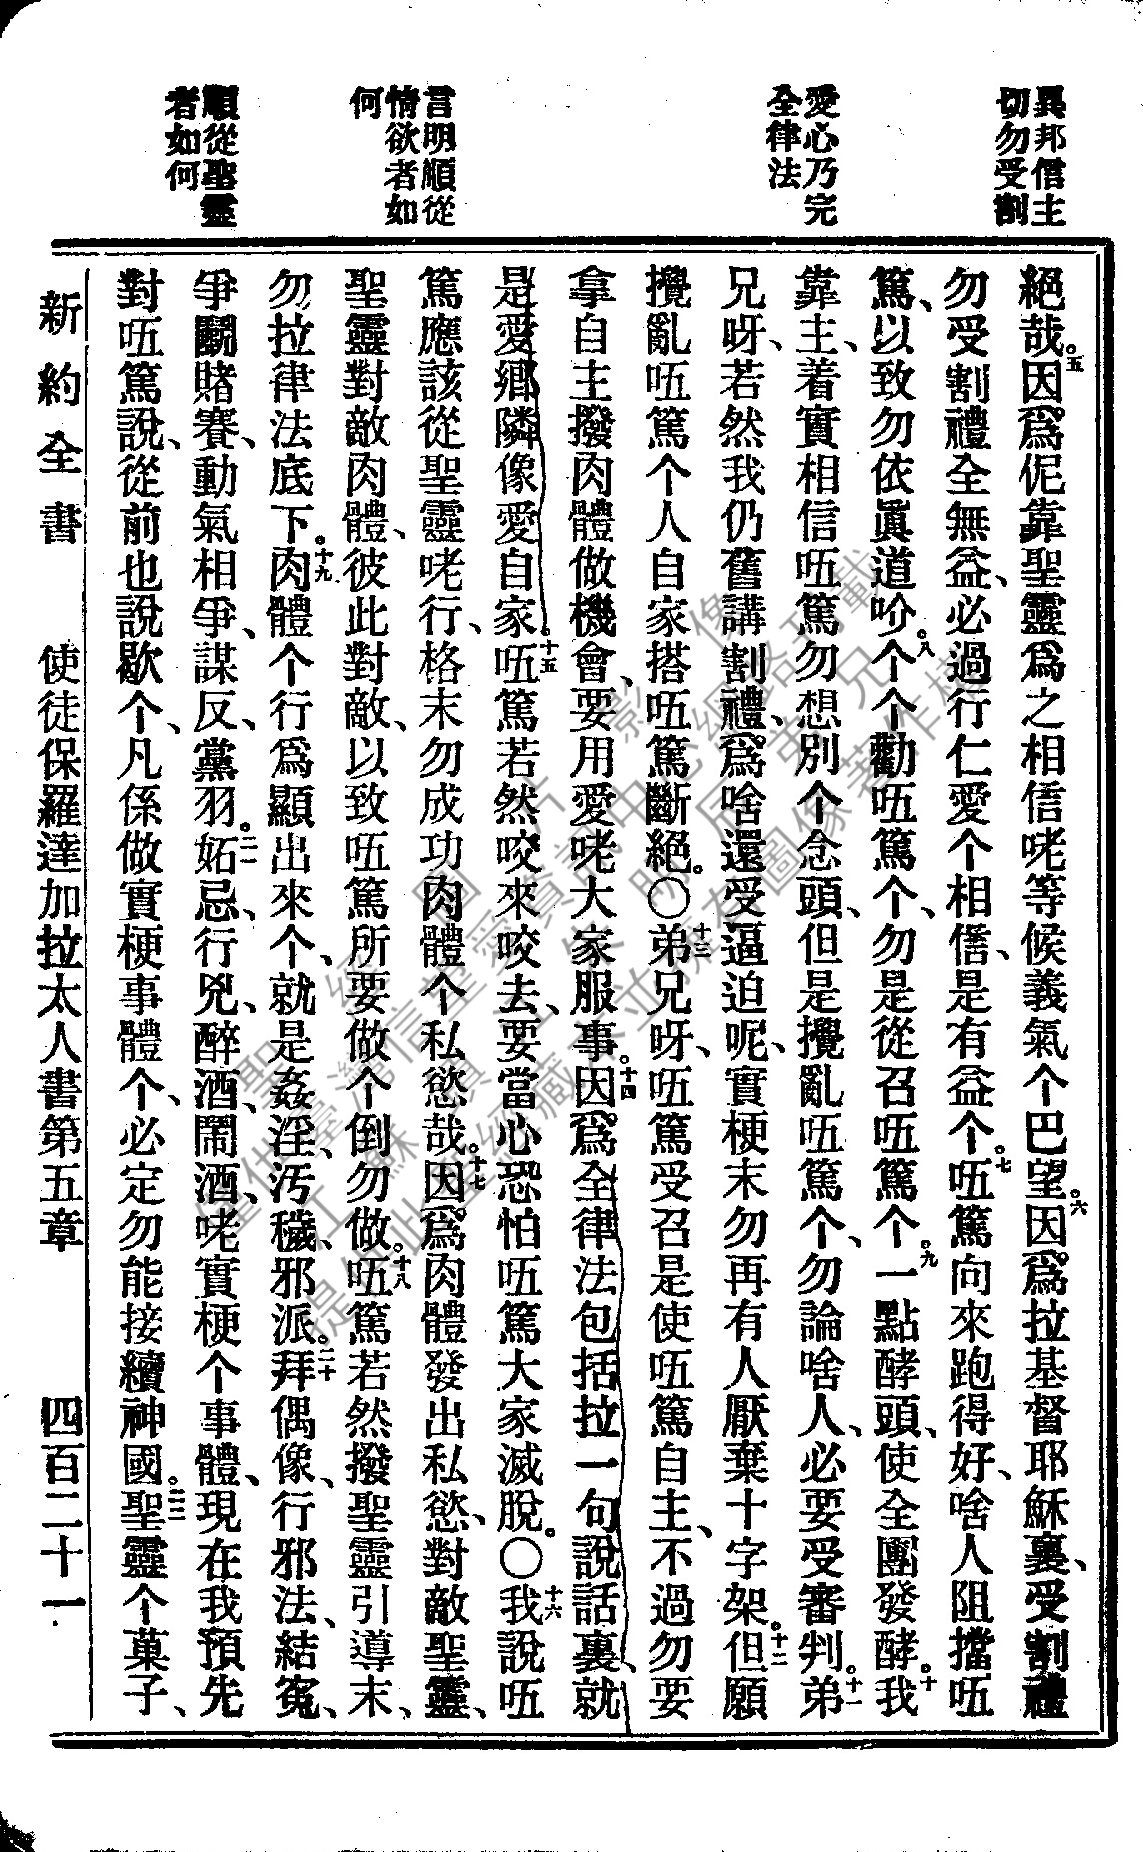 異邦信主
切勿受割
愛心乃完
全律法
言明順從
情欲者如
何
順從聖靈
者如何
絕哉。五因爲伲靠聖靈爲之相信咾等候義氣个巴望。六因爲拉基督耶穌裏、受割禮
勿受割禮全無益、必過行仁愛个相信、是有益个。七㑚篤向來跑得好、啥人阻擋㑚
篤、以致勿依眞道吤。八个个勸㑚篤个、勿是從召㑚篤个。九一點酵頭、使全團發酵。十我
靠主、着實相信㑚篤勿想別个念頭、但是攪亂㑚篤个、勿論啥人、必要受審判。十一弟
兄呀、若然我仍舊講割禮、爲啥還受逼迫呢、實梗末勿再有人厭棄十字架。十二但願
攪亂㑚篤个人自家搭㑚篤斷絕。〇十三弟兄呀、㑚篤受召是使㑚篤自主、不過勿要
拿自主撥肉體做機會、要用愛咾大家服事。十四因爲全律法包括拉一句說話裏、就
是愛鄉隣像愛自家。十五㑚篤若然咬來咬去、要當心恐怕㑚篤大家滅脫。〇十六我說㑚
篤應該從聖靈咾行、格末勿成功肉體个私慾哉。十七因爲肉體發出私慾、對敵聖靈、
聖靈對敵肉體、彼此對敵、以致㑚篤所要做个倒勿做。十八㑚篤若然撥聖靈引導末、
勿拉律法底下。十九肉體个行爲顯出來个、就是姦淫、汚穢、邪派。二十拜偶像、行邪法、結冤、
爭鬭賭賽、動氣相爭、謀反、黨羽。二一妬忌、行兇、醉酒、鬧酒、咾實梗个事體、現在我預先
對㑚篤說、從前也說歇个、凡係做實梗事體个、必定勿能接續神國。二二聖靈个菓子、
新約全書　使徒保羅達加拉太人書第五章　四百二十一
聖經圖片影像
僅供臺灣信望愛資訊中心網路刊載